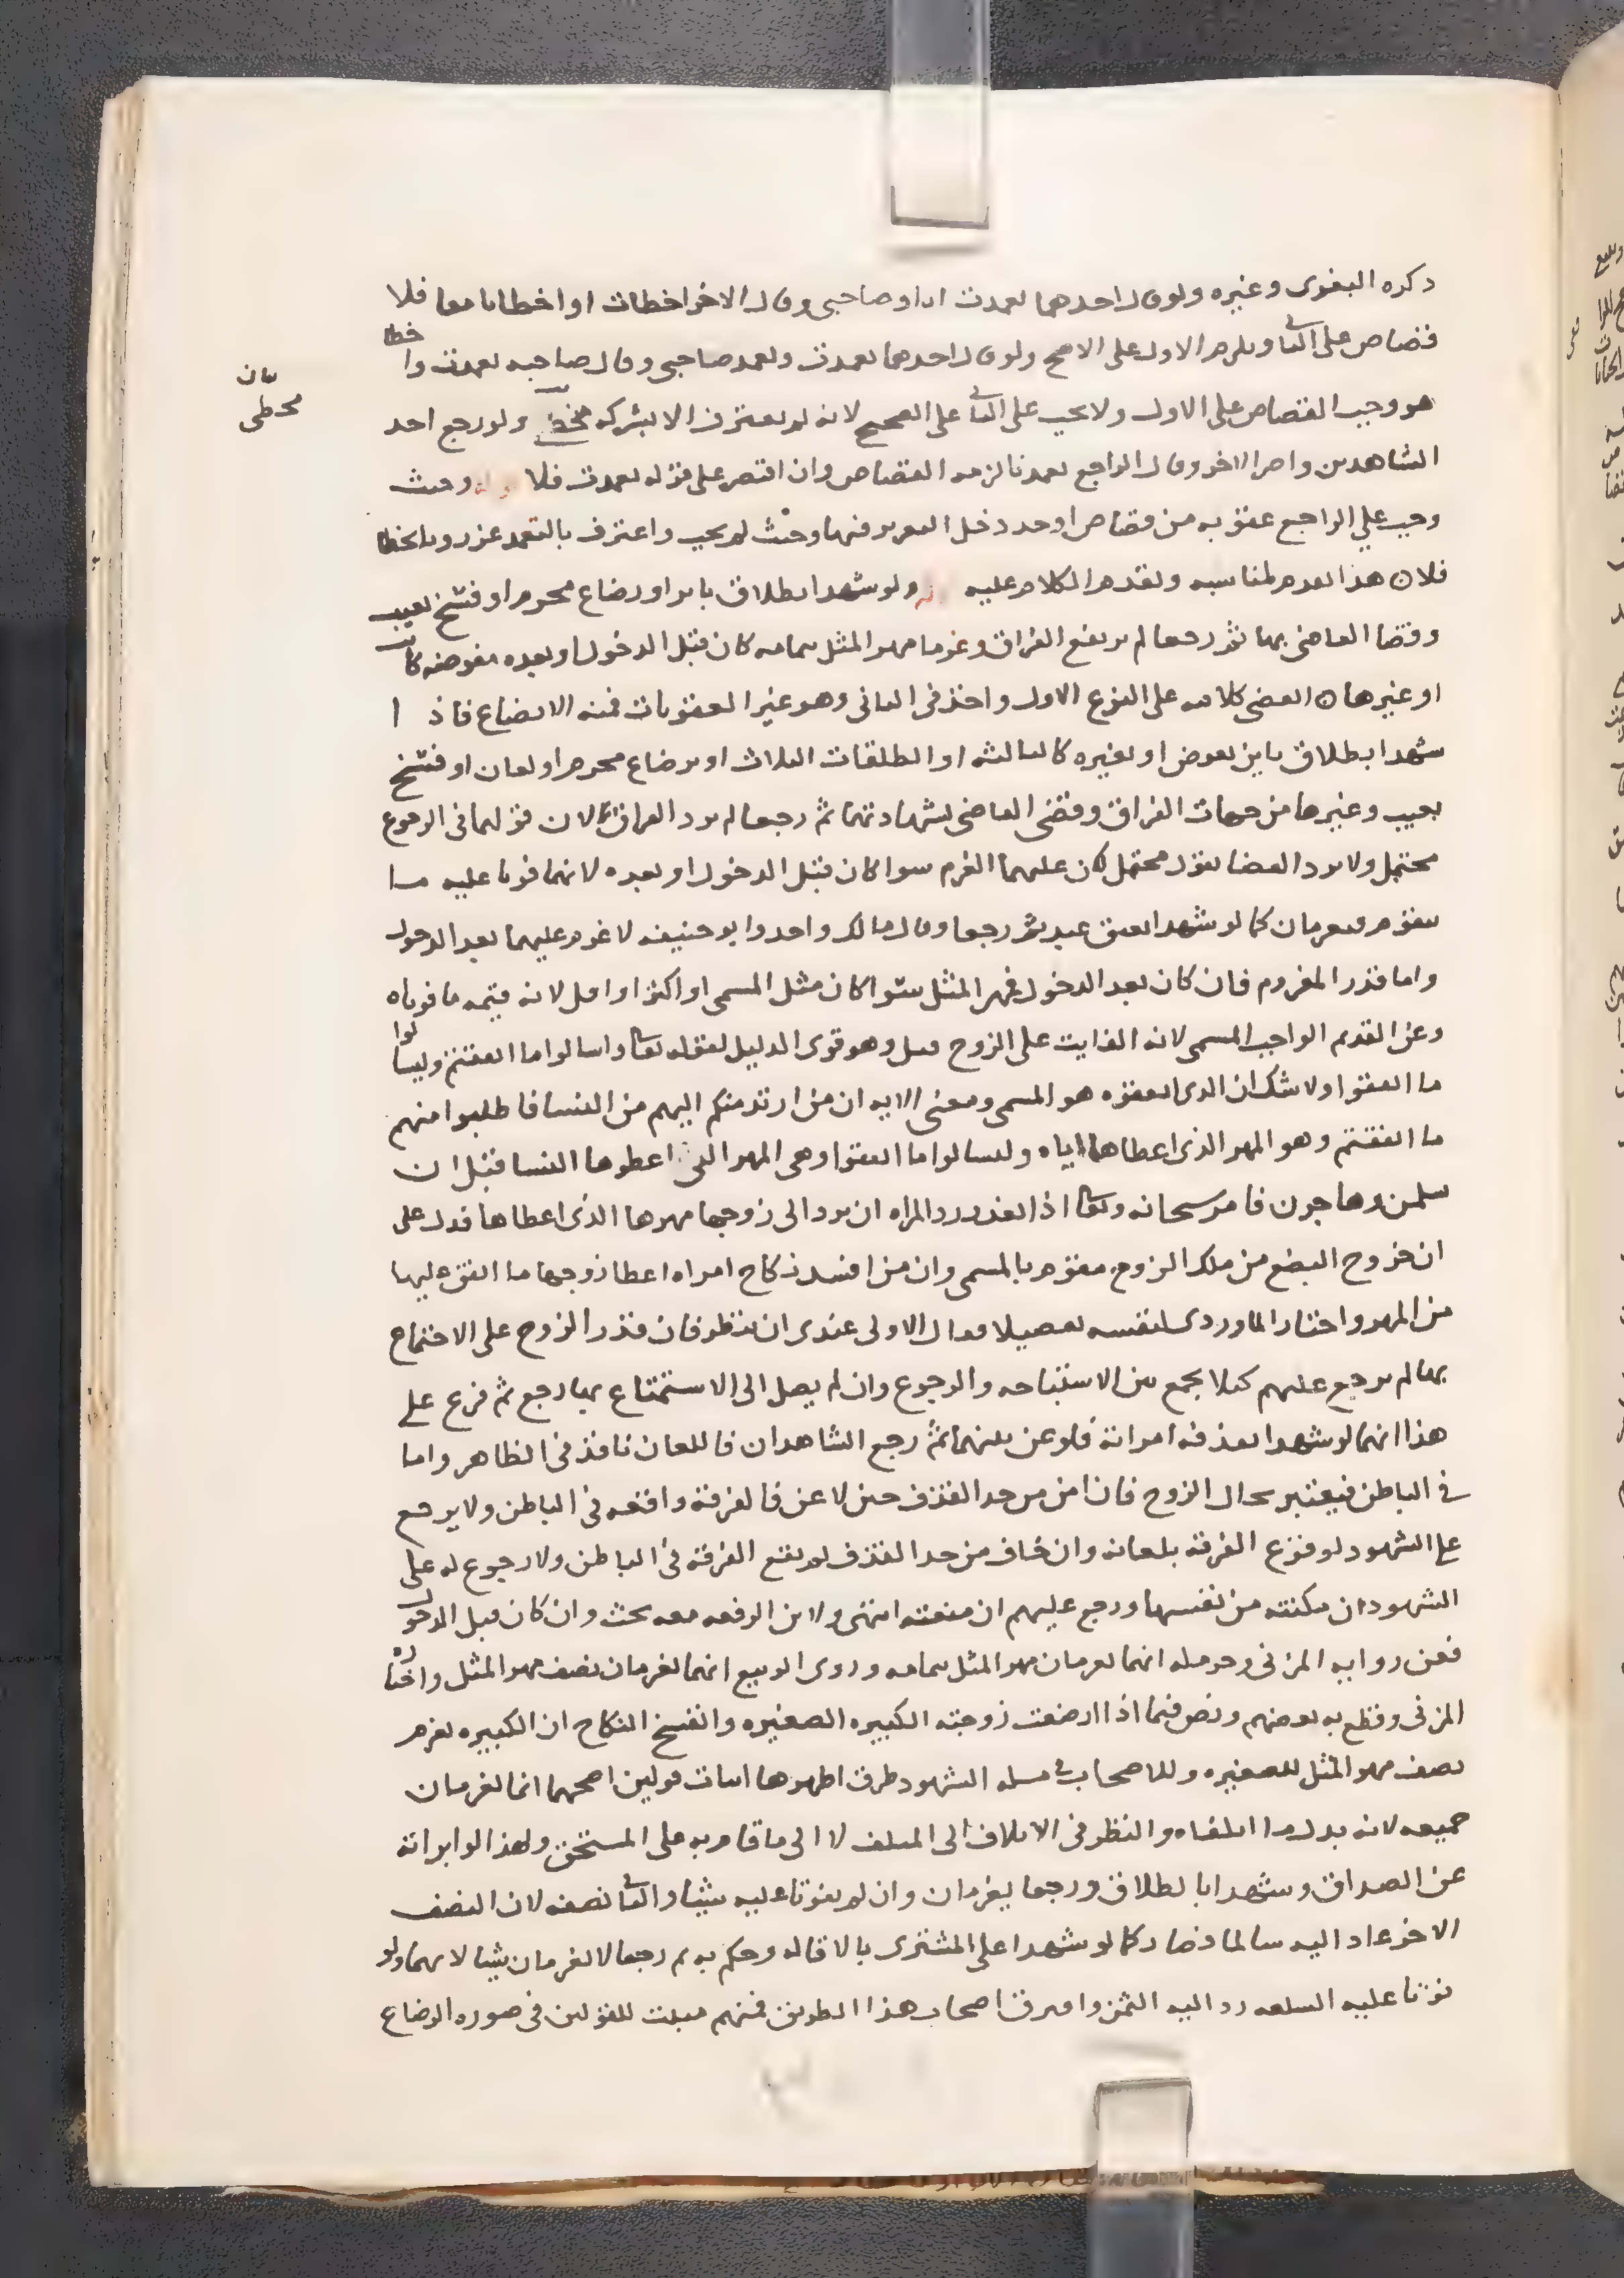 ذكره البغوى وغيره ولو قال احدهما تعمدت انا وصاحبى وقال الاخر اخطات او اخطانا معا فلا
قصاص على الثانى ويلزم الاول على الاصح ولو قال احدهما تعمدت وتعمد صاحبى وقال صاحبه تعمدت واخطا
هو وجب القصاص على الاول ولا يجب على الثانى على الصحيح لانه لم يعترف الا بشركه مخط ولو رجع احد
بيان
مخطى
الشاهدين واصر الاخر وقال الراجع تعمدنا لزمه القصاص وان اقتصر على قوله تعمدت فلا وحيث
وجب على الراجع عقوبه من قصاص او حد دخل التعزير فيها وحيث لم يجب واعترف بالتعمد عزر وبالخطا
فلا ن هذا تقدم لمناسبه وتقدم الكلام عليه ولو شهدا بطلاق باين او رضاع محرم او فسخ بعيب
وقضا القاضى بها ثم رجعا لم يرتفع الفراق وغرما مهر المثل بتمامه كان قبل الدخول او بعده مفوضه كانت
او غيرها ن انقضى كلامه على النوع الاول واخذ فى الثانى وهو غير العقوبات فمنه الابضاع فاذا
شهدا بطلاق باين بعوض او بغيره كالثالثه او الطلقات الثلاث او برضاع محرم او لعان او فسخ
بعيب وغيرها من جهات الفراق وقضى القاضى بشهادتهما ثم رجعا لم يرد الفراق لان قولهما فى الرجوع
محتمل ولا يرد القضا بقول محتمل لكن عليهما الغرم سوا كان قبل الدخول او بعده لانهما فوتا عليه ما
يتقوم فيغرمان كما لو شهدا بعتق عبد ثم رجعا وقال مالك واحد وابو حنيفه لا غرم عليهما بعد الدخول
واما قدر المغروم فان كان بعد الدخول فمهر المثل سوا كان مثل المسمى او اكثر او اقل لانه قيمه ما فوتاه
وعن القديم الواجب المسمى لانه الفايت على الزوج قيل وهو قوى الدليل لقوله تعالى واسالوا ما انفقتم وليسالوا
ما انفقوا ولا شك ان الذى انفقوه هو المسمى ومعنى الايه ان من ارتد منكم اليهم من النسا فاطلبوا منهم
ما انفقتم وهو المهر الذى اعطاها اياه وليسالوا ما انفقوا وهى المهر التى اعطوها النسا قبل ان
يسلمن ويهاجرن فامر سبحانه وتعالى اذا تعذر رد المراه ان يرد الى زوجها مهرها الذى اعطاها فدل على
ان خروج البضع من ملك الزوج متقوم بالمسمى وان من افسد نكاح امراه اعطا زوجها ما انفق عليها
من المهر واختار الماوردى لنفسه تفصيلا فقال الاولى عندى ان ينظر فان قدر الزوج على الاجتماع
بها لم يرجع عليهم كيلا يجمع بين الاستباحه والرجوع وان لم يصل الى الاستمتاع بها رجع ثم فرع على
هذا انهما لو شهدا بقذفه امراته فلوعن بينهما ثم رجع الشاهدان فاللعان نافذ فى الظاهر واما
فى الباطن فيعتبر بحال الزوج فان امن من حد القذف حين لاعن فالفرقه واقعه فى الباطن ولا يرجع
على الشهود لوقوع الفرقه بلعانه وان خاف من حد القذف لم تقع الفرقه فى الباطن ولا رجوع له على
الشهود ان مكنته من نفسها ورجع عليهم ان منعته انتهى ولابن الرفعه معه بحث وان كان قبل الدخول
فعن روايه المزنى وحرمله انهما يغرمان مهر المثل بتمامه وروى الربيع انهما يغرمان نصف مهر المثل واختاره
المزنى وقطع به بعضهم ونص فيما اذا ارضعت زوجته الكبيره الصغيره وانفسخ النكاح ان الكبيره تغرم
نصف مهر المثل للصغيره وللاصحاب فى مسله الشهود طرق اظهرها اثبات قولين اصحهما انهما يغرمان
جميعه لانه بدل ما اتلفاه والنظر فى الاتلاف الى المتلف لا الى ما قام به على المستحق ولهذا لو ابراته
عن الصداق وشهدا بالطلاق ورجعا يغرمان وان لم يفوتا عليه شيئا والثانى نصفه لان النصف
الاخر عاد اليه سالما فصار كما لو شهدا على المشترى بالاقاله وحكم به ثم رجعا لا يغرمان شيئا لانهما ولو
فوتا عليه السلعه رد اليه الثمن وافترق اصحاب هذا الطريق فمنهم مثبت للقولين فى صوره الرضاع